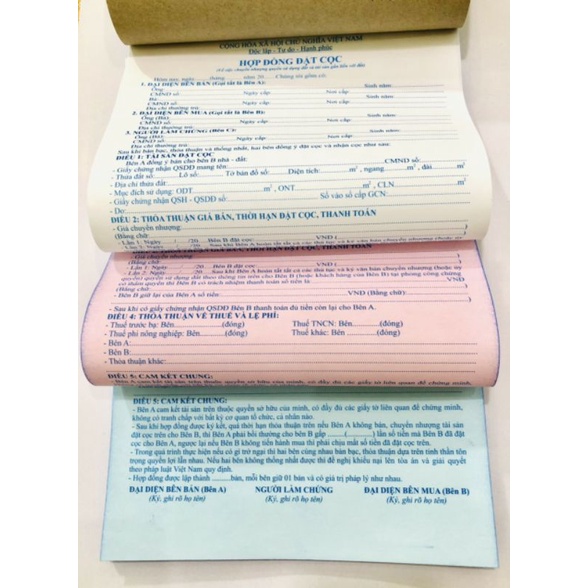 CỘNG HÒA XÃ HỘI CHỦ NGHĨA VIỆT NAM
Độc lập - Tự do - Hạnh phúc
HỢP ĐỒNG ĐẶT CỌC
Hôm nay, ngày......tháng......năm 20..... Chúng tôi gồm có:
1. ĐẠI DIỆN BÊN BÁN (Gọi tắt là Bên A):
Ông: Sinh năm:
CMND số: Ngày cấp: Nơi cấp:
Bà: Sinh năm:
CMND số: Ngày cấp: Nơi cấp:
Địa chỉ thường trú:
2. ĐẠI DIỆN BÊN MUA (Gọi tắt là Bên B):
Ông (Bà): Sinh năm:
CMND số: Ngày cấp: Nơi cấp:
Địa chỉ thường trú:
3. NGƯỜI LÀM CHỨNG (Bên C):
Ông (Bà): Sinh năm:
CMND số: Ngày cấp: Nơi cấp:
Địa chỉ thường trú:
Sau khi bàn bạc, thỏa thuận và thống nhất, hai bên đồng ý đặt cọc và nhận cọc như sau:
ĐIỀU 1: TÀI SẢN ĐẶT CỌC
Bên A đồng ý bán cho bên B nhà - đất:
- Giấy chứng nhận QSDĐ mang tên: CMND số:
- Thửa đất số: Lô số: Tờ bản đồ số: Diện tích: m², ngang m², dài m²
- Địa chỉ thửa đất:
- Mục đích sử dụng: ODT m², ONT m², CLN m²
- Giấy chứng nhận QSH - QSDĐ số: Số vào sổ cấp GCN:
- Do:
ĐIỀU 2: THỎA THUẬN GIÁ BÁN, THỜI HẠN ĐẶT CỌC, THANH TOÁN
- Giá chuyển nhượng:
(Bằng chữ: )
- Lần 1: Ngày / /20 Bên B đặt cọc VNĐ ( )
- Giá chuyển nhượng:
(Bằng chữ: )
- Lần 1: Ngày / /20 Bên B đặt cọc VNĐ ( )
- Lần 2: Ngày / /20 Sau khi Bên A hoàn tất tất cả các thủ tục và ký văn bản chuyển nhượng
(Bằng chữ: )
- Bên B giữ lại của Bên A số tiền: VNĐ (Bằng chữ):
- Sau khi có giấy chứng nhận QSDĐ Bên B thanh toán đủ tiền còn lại cho Bên A.
ĐIỀU 4: THỎA THUẬN VỀ THUẾ VÀ LỆ PHÍ:
- Thuế trước bạ: Bên............(đóng) Thuế TNCN: Bên............(đóng)
- Thuế phi nông nghiệp: Bên............(đóng) Thuế khác: Bên............(đóng)
- Bên A:
- Bên B:
- Thỏa thuận khác:
ĐIỀU 5: CAM KẾT CHUNG:
- Bên A cam kết tài sản trên thuộc quyền sở hữu của mình, có đầy đủ các giấy tờ liên quan để chứng minh,
ĐIỀU 5: CAM KẾT CHUNG:
- Bên A cam kết tài sản trên thuộc quyền sở hữu của mình, có đầy đủ các giấy tờ liên quan để chứng minh,
không có tranh chấp với bất kỳ cơ quan tổ chức, cá nhân nào.
- Sau khi hợp đồng được ký kết, quá thời hạn thỏa thuận trên nếu Bên A không bán, chuyển nhượng tài sản
đặt cọc trên cho Bên B, thì Bên A phải bồi thường cho bên B gấp ......(............) lần số tiền mà Bên B đã đặt
cọc cho Bên A, ngược lại nếu Bên B không tiến hành mua thì phải chịu mất số tiền đã đặt cọc trên.
- Trong quá trình thực hiện nếu có gì trở ngại thì hai bên cùng nhau bàn bạc, thỏa thuận dựa trên tinh thần tôn
trọng quyền lợi lẫn nhau. Nếu hai bên không thống nhất được thì đề nghị khiếu nại lên tòa án và giải quyết
theo pháp luật Việt Nam quy định.
- Hợp đồng được lập thành ..........bản, mỗi bên giữ 01 bản và có giá trị pháp lý như nhau.
ĐẠI DIỆN BÊN BÁN (Bên A) NGƯỜI LÀM CHỨNG ĐẠI DIỆN BÊN MUA (Bên B)
(Ký, ghi rõ họ tên) (Ký, ghi rõ họ tên) (Ký, ghi rõ họ tên)